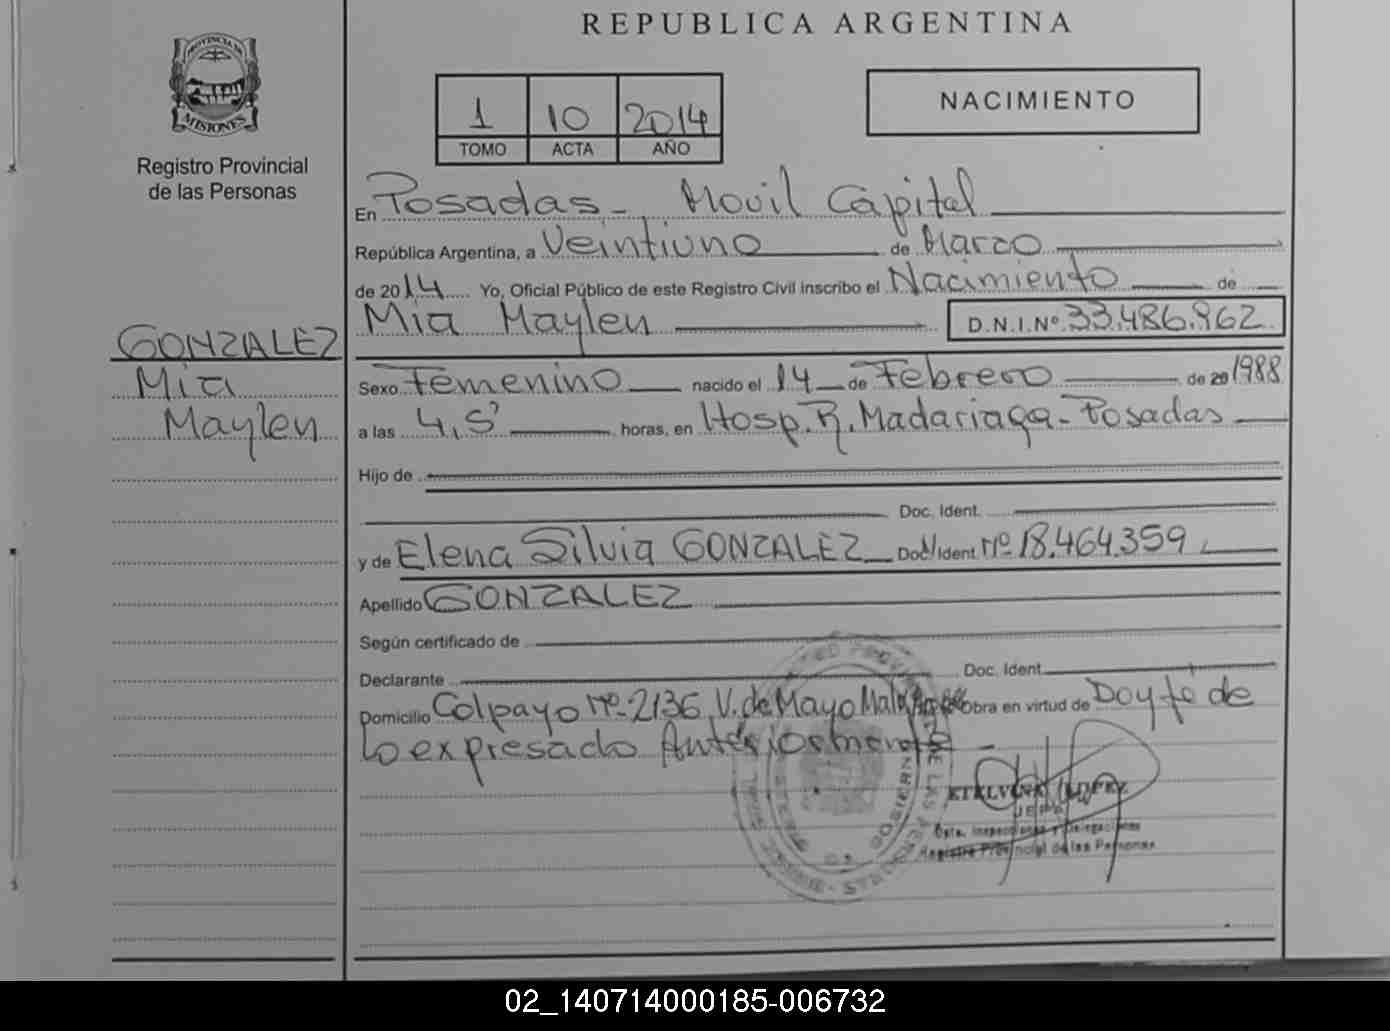 REPUBLICA ARGENTINA
PROVINCIA DE
MISIONES
Registro Provincial
de las Personas
1 10 2014
TOMO ACTA AÑO
NACIMIENTO
En Posadas - Movil Capital
República Argentina, a Veintiuno de Marzo
de 2014 Yo, Oficial Público de este Registro Civil inscribo el Nacimiento de
Mia Maylen D.N.I.Nº 33.486.962
GONZALEZ
Mia
Maylen
Sexo Femenino nacido el 14 de Febrero de 20 1988
a las 4,5' horas, en Hosp. R. Madariaga - Posadas
Hijo de
Doc. Ident.
y de Elena Silvia GONZALEZ Doc. Ident Nº 18.464.359
Apellido GONZALEZ
Según certificado de
Declarante Doc. Ident.
Domicilio Colpayo Nº 2136 V. de Mayo Obra en virtud de Doy fe de
lo expresado Anteriormente
LOPEZ
JEFA
Dpto. Inspecciones y Delegaciones
Registro Provincial de las Personas
02_140714000185-006732